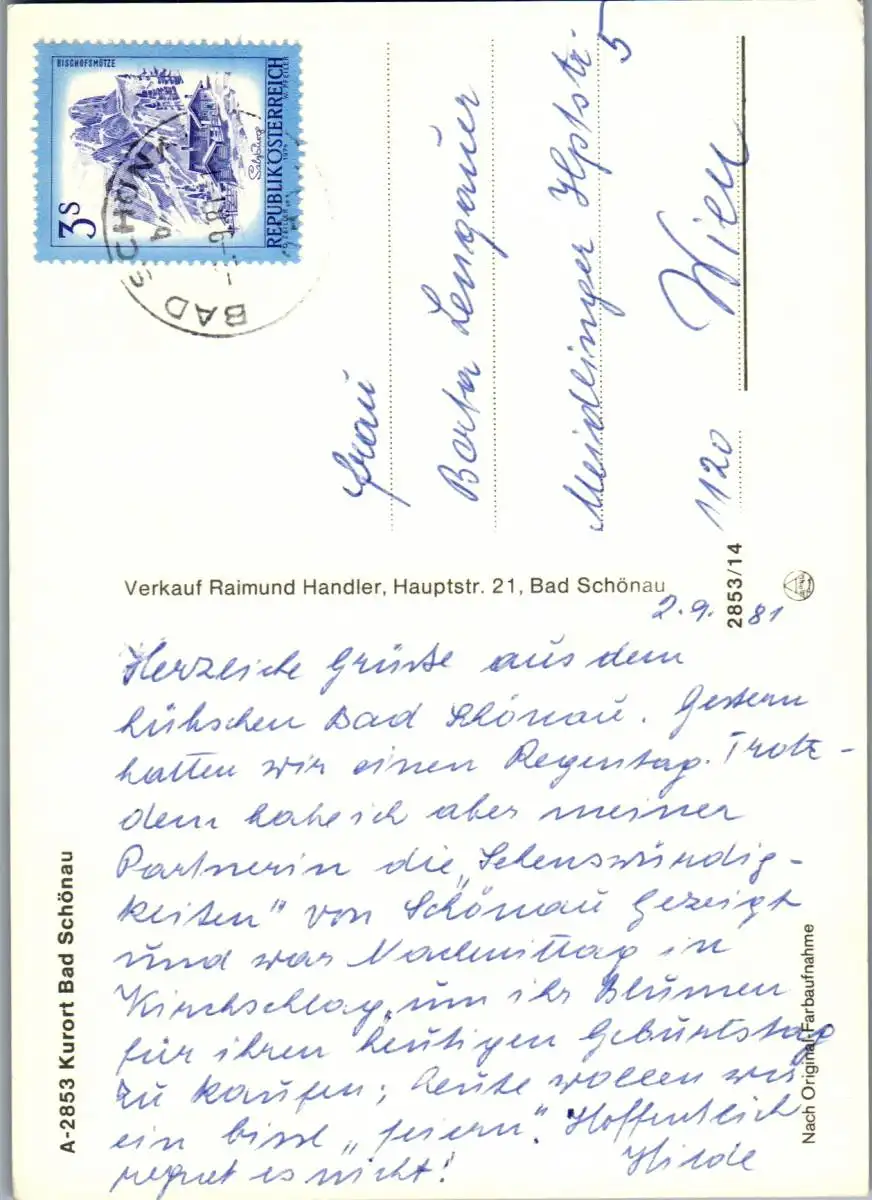 BISCHOFSMÜTZE
3 S
REPUBLIK ÖSTERREICH
Salzburg
1974
BAD SCHÖNAU
Frau
Berta Lengauer
Meidlinger Hptstr. 5
1120 Wien
Verkauf Raimund Handler, Hauptstr. 21, Bad Schönau
2853/14
2.9.81
Herzliche Grüsse aus dem
hübschen Bad Schönau. Gestern
hatten wir einen Regentag. Trotz-
dem habe ich aber meiner
Partnerin die „Sehenswürdig-
keiten" von Schönau gezeigt
und war Nachmittag in
Kirchschlag, um ihr Blumen
für ihren heutigen Geburtstag
zu kaufen; heute wollen wir
ein bissl „feiern". Hoffentlich
regnet es nicht!
Hilde
A-2853 Kurort Bad Schönau
Nach Original-Farbaufnahme